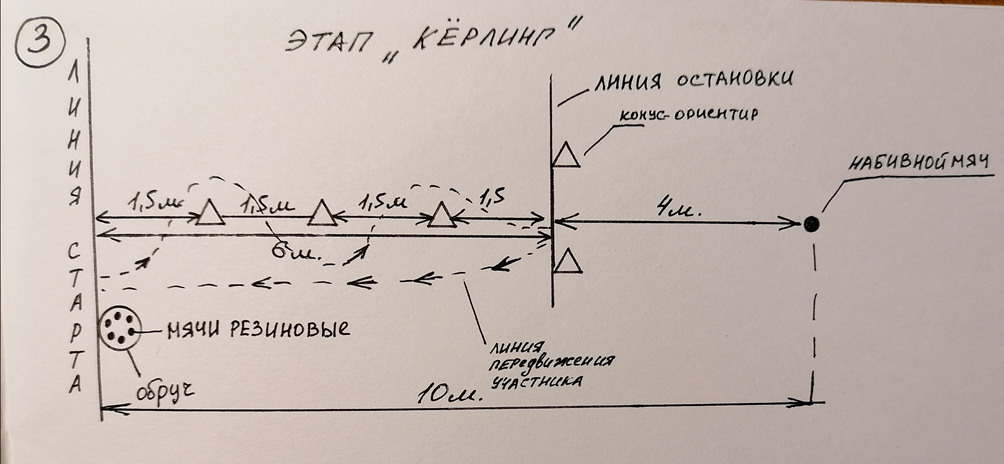 3
ЭТАП „КЁРЛИНГ"
ЛИНИЯ СТАРТА
ЛИНИЯ ОСТАНОВКИ
КОНУС-ОРИЕНТИР
НАБИВНОЙ МЯЧ
1,5м
1,5м
1,5м
1,5
4м.
6м.
МЯЧИ РЕЗИНОВЫЕ
ОБРУЧ
ЛИНИЯ
ПЕРЕДВИЖЕНИЯ
УЧАСТНИКА
10м.